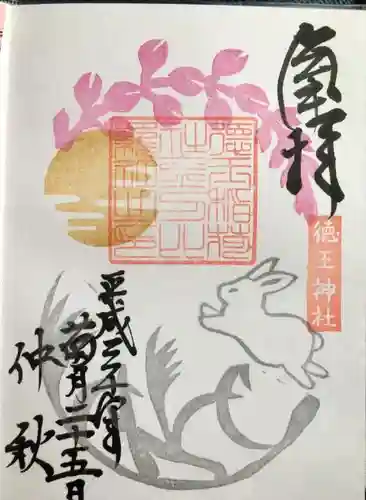 奉拝
徳王神社
平成三十年
菊月二十五日
仲秋